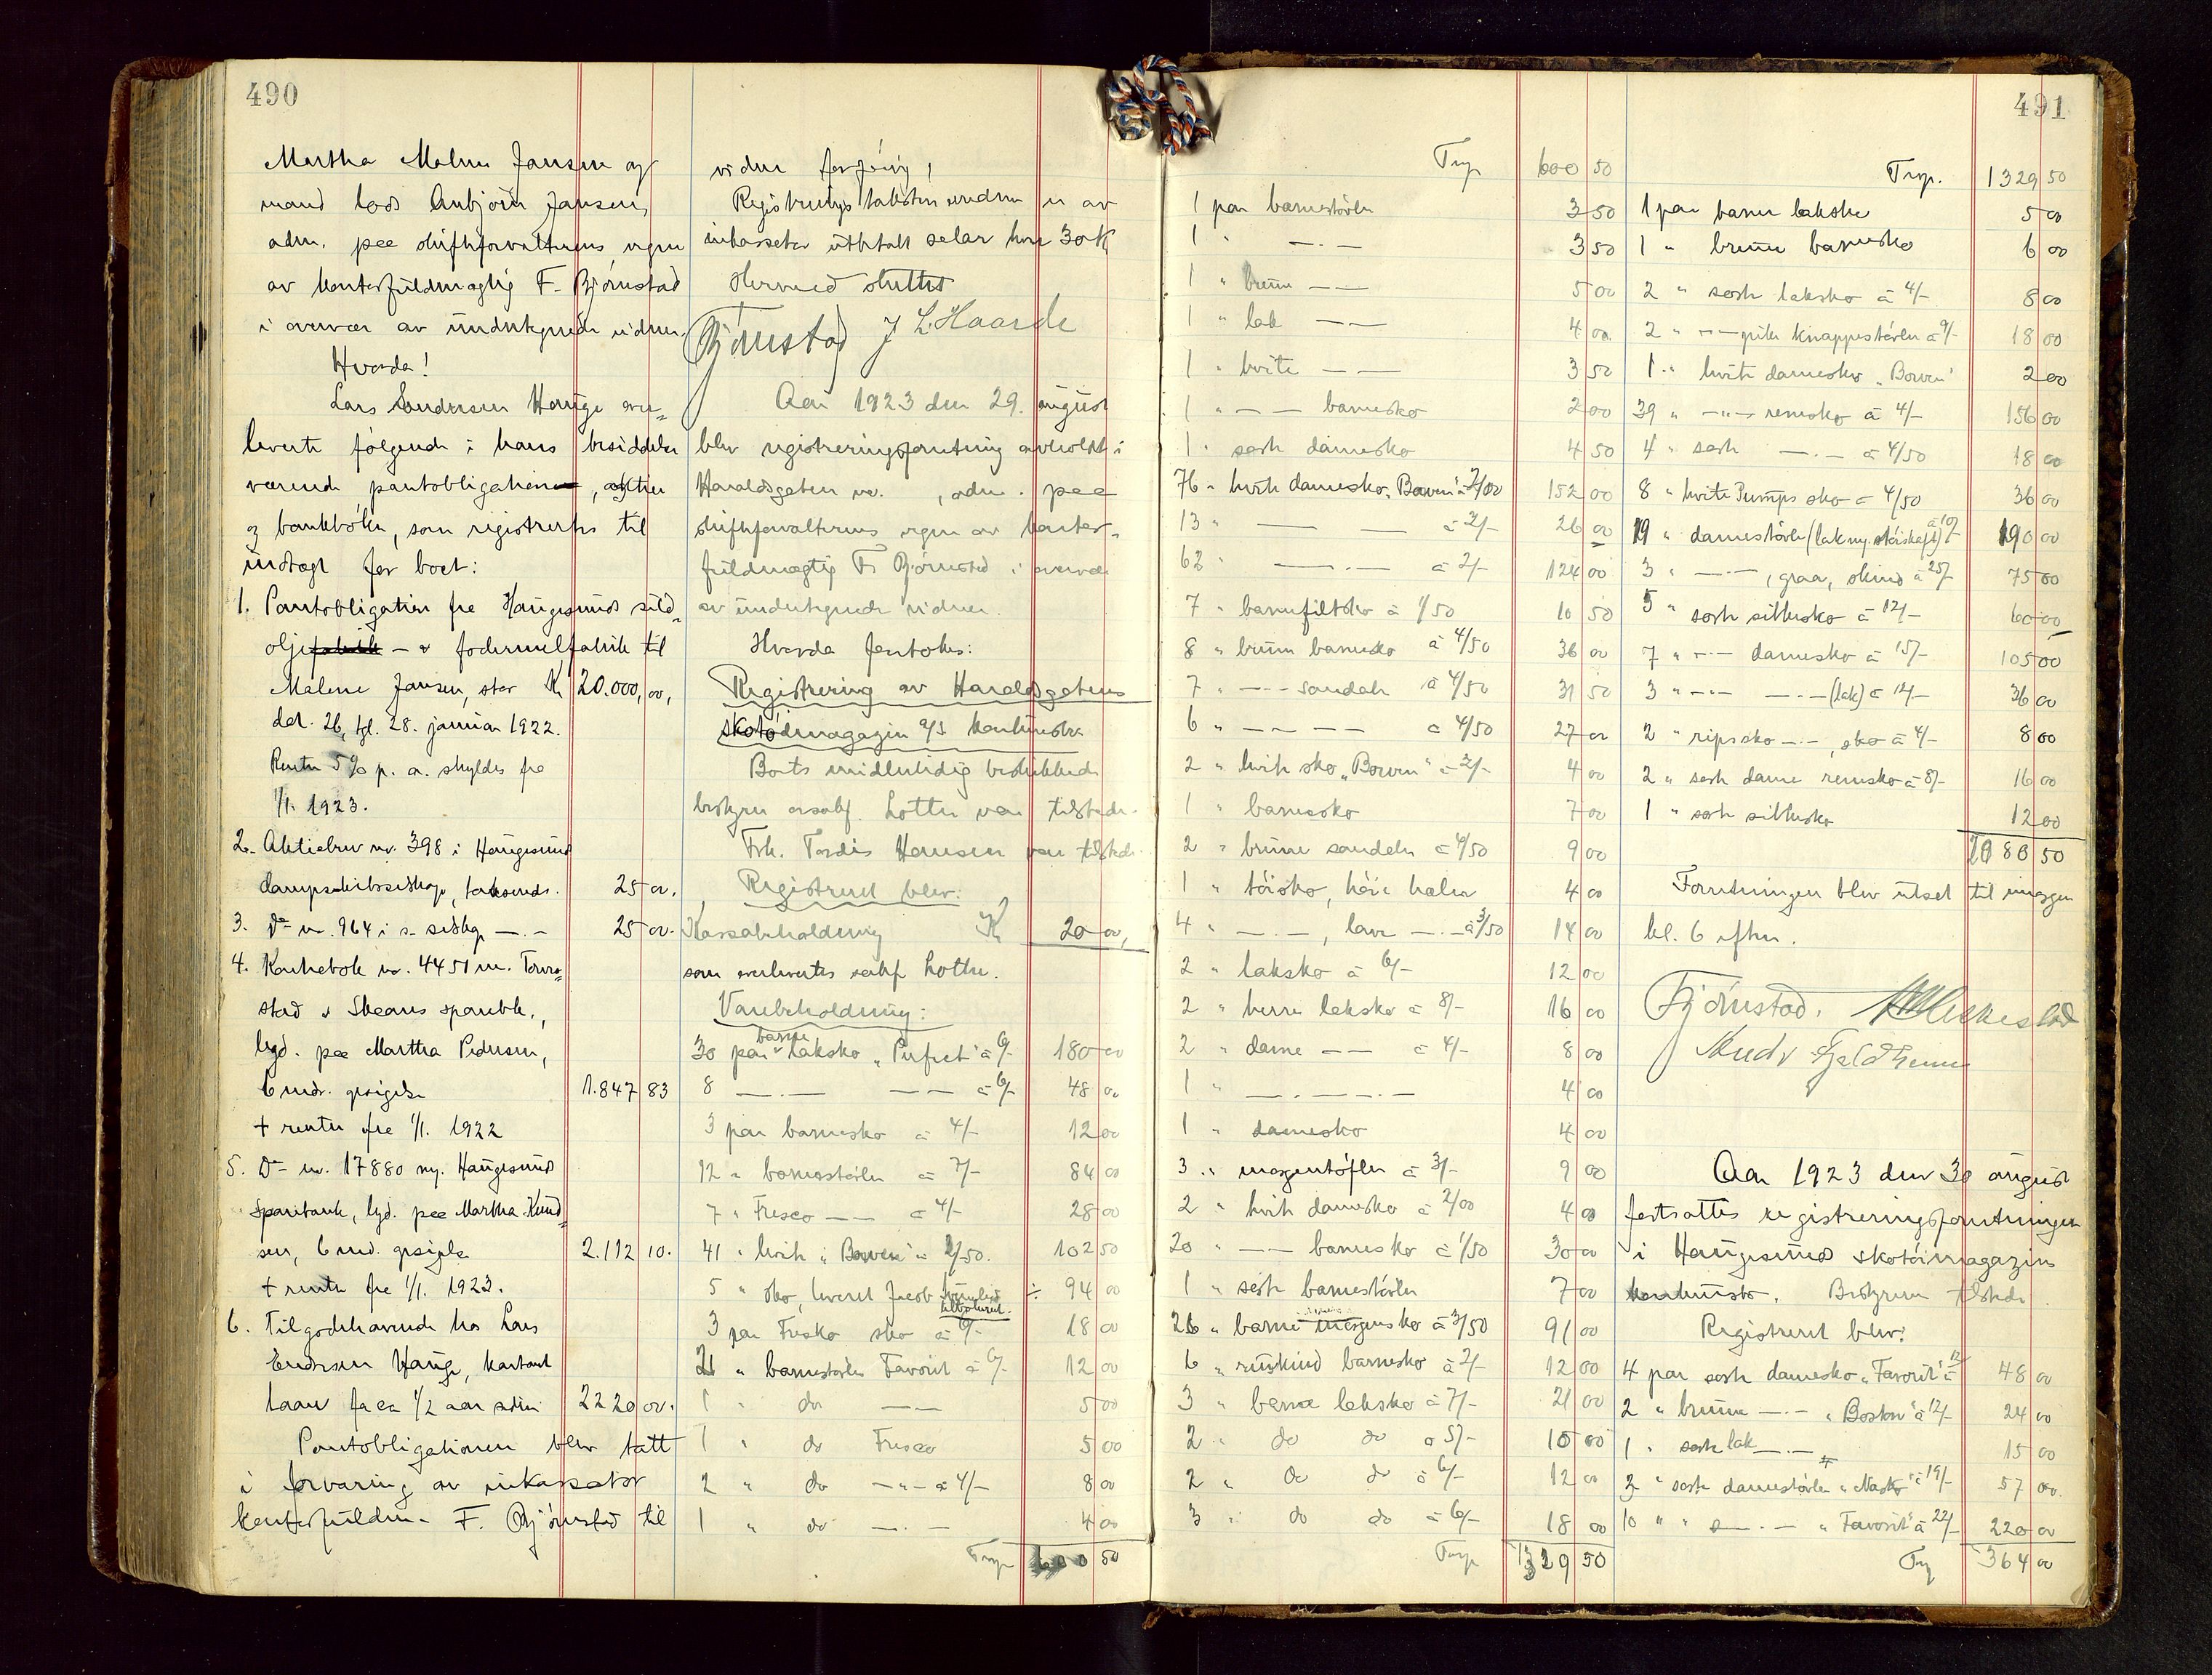 490
Martha Malene Jansen og
mand lods Anbjörn Jansen,
adm. paa skifteforvalterens vegne
av kontorfuldmægtig F. Björnstad
i overvær av undertegnede vidner.
Hvorda!
Lars Endresen Hauge over-
leverte følgende i hans besiddelse
værende pantobligation, aktier
og bankböker, som registrertes til
indtægt for boet:
1. Pantobligation fra Haugesunds sild-
olje - & fodermelfabrik til
Malene Jansen, stor Kr 20.000,00,
dat. 26, tgl. 28. januar 1922.
Rente 5% p. a. skyldes fra
1/1. 1923.
2. Aktiebrev nr. 398 i Haugesund
dampskibsselskap, lydende. 25 00.
3. Do nr. 964 i s. selskap — . — 25 00.
4. Kontrabok nr. 4451 m. Torva-
stad & Skaares sparebk.,
lyd. paa Martha Pedersen,
6 mdr. opsigelse 1.847 83
+ renter fra 1/1. 1922
5. Do nr. 17880 m. Haugesund
Sparebank, lyd. paa Martha Knud-
sen, 6 md. opsigelse 2.112 10.
+ renter fra 1/1. 1923.
6. Tilgodehavende hos Lars
Endresen Hauge, kontant
laan for ca 1/2 aar siden 2220 00.
Pantobligationen blev tatt
i forvaring av inkassator
kontorfuldm. F. Björnstad til
videre forføing,
Registreringstaksten vidner er av
inkassator utbetalt selar hver 30 K
Hermed sluttet
Björnstad J L. Haarde
Aar 1923 den 29. august
blev registreringsforretning avholdt i
Haraldsgaten nr. , adm. paa
skifteforvalterens vegne av kontor-
fuldmægtig F. Björnstad i overvær
av undertegnede vidner.
Hvorda foretokes:
Registrering av Haraldsgatens
skotöimagazin a/s konkursbo
Boets midlertidig beskikkede
bestyrer orsakf. Lothe var tilstede.
Frk. Tordis Hansen var tilstede.
Registreret blev:
Kassabeholdning Kr 20 00,
som overlevertes sakf Lothe.
Varebeholdning:
30 par barne laksko "Perfect" à 6/- 180 00
8 — . — — — à 6/- 48 00
3 par barnesko à 4/- 12 00
12 " barnestövler à 7/- 84 00
7 " Fresco — — à 4/- 28 00
41 " hvite "Bowen" à 2/50. 102 50
5 " sko, leveret Jacob ÷ 94 00
3 par Fresko sko à 6/- 18 00
2 " barnestövler Favorit à 6/- 12 00
1 " do — — 5 00
1 " do Fresco 5 00
2 " do — " — à 4/- 8 00
1 " do — . — 4 00
Trsp 600 50
491
Trsp 600 50
1 par barnestövler 3 50
1 " — . — 3 50
1 " brune — — 5 00
1 " lak — — 4 00
1 " hvite — — 3 50
1 " — — barnesko 2 00
1 " sorte damesko 4 50
76 " hvite damesko "Bowen" à 2/00 152 00
13 " — — à 2/- 26 00
62 " — . — à 2/- 124 00
7 " barnefiltsko à 1/50 10 50
8 " brune barnesko à 4/50 36 00
7 " — - - sandaler à 4/50 31 50
6 " — — — — à 4/50 27 00
2 " hvite sko "Bowen" à 2/- 4 00
1 " barnesko 7 00
2 " brune sandaler à 4/50 9 00
1 " töisko, höie hæler 4 00
4 " — . —, lave — . — à 3/50 14 00
2 " laksko à 6/- 12 00
2 " herre laksko à 8/- 16 00
2 " dame — — à 4/- 8 00
1 " — . — . — . — 4 00
1 " damesko 4 00
3 " morgentöfler à 3/- 9 00
2 " hvite damesko à 2/00 4 00
20 " — — barnesko à 1/50 30 00
1 " sorte barnestövler 7 00
26 " barne morgensko à 3/50 91 00
6 " ruskind barnesko à 2/- 12 00
3 " barne laksko à 7/- 21 00
2 " do do à 5/- 10 00
2 " do do à 6/- 12 00
3 " do do à 6/- 18 00
Trsp 1329 50
Trsp. 1329 50
1 par barne laksko 5 00
1 " brune barnesko 6 00
2 " sorte laksko à 4/- 8 00
2 " — — pike knappestövler à 9/- 18 00
1 " hvite damesko "Bowen" 2 00
39 " — " — remsko à 4/- 156 00
4 " sorte — . — à 4/50 18 00
8 " hvite Pumps sko à 4/50 36 00
19 " damestövler (lak m. töiskaft) à 10/- 190 00
3 " — . —, graa, skind à 25/- 75 00
5 " sorte silkesko à 12/- 60 00
7 " — . — damesko à 15/- 105 00
3 " — . — — . — (lak) à 12/- 36 00
2 " ripssko — . —, sko à 4/- 8 00
2 " sorte dame remsko à 8/- 16 00
1 " sorte silkesko 12 00
2080 50
Forretningen blev utsat til imorgen
kl. 6 efterm.
Björnstad.
Andr Fjeldheim
Aar 1923 den 30 august
fortsattes registreringsforretningen
i Haugesunds skotöimagazins
konkursbo. Bestyreren tilstede
Registreret blev:
4 par sorte damesko "Favorit" à 12/- 48 00
2 " brune — . — "Boston" à 12/- 24 00
1 " sorte lak — . — 15 00
3 " sorte damestövler "Nasko" à 19/- 57 00.
10 " " — . — "Favorit" à 22/- 220 00
Trsp 364 00